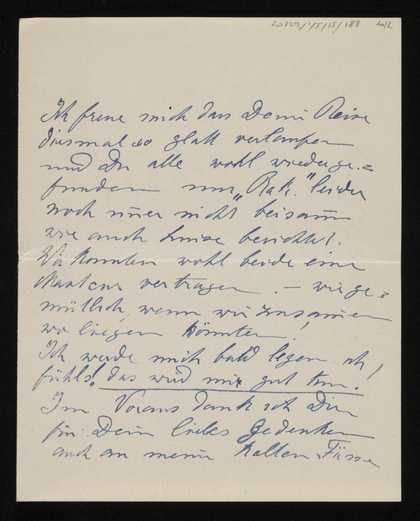 Ich freue mich dass Deine Reise
diesmal so glatt verlaufen
und Du alle wohl wiederge-
funden nur "Rak." leider
noch immer nicht beisam̄
wie auch Luise berichtet.
Wir könnten wohl beide eine
Mastcur vertragen. – wie ge-
mütlich, wenn wir zusammen
wo liegen könnten!
Ich werde mich bald legen ich
fühls! das wird mir gut tun.!
Im Voraus dank ich Dir
für Dein liebes Gedenken
auch an meine kalten Füsse